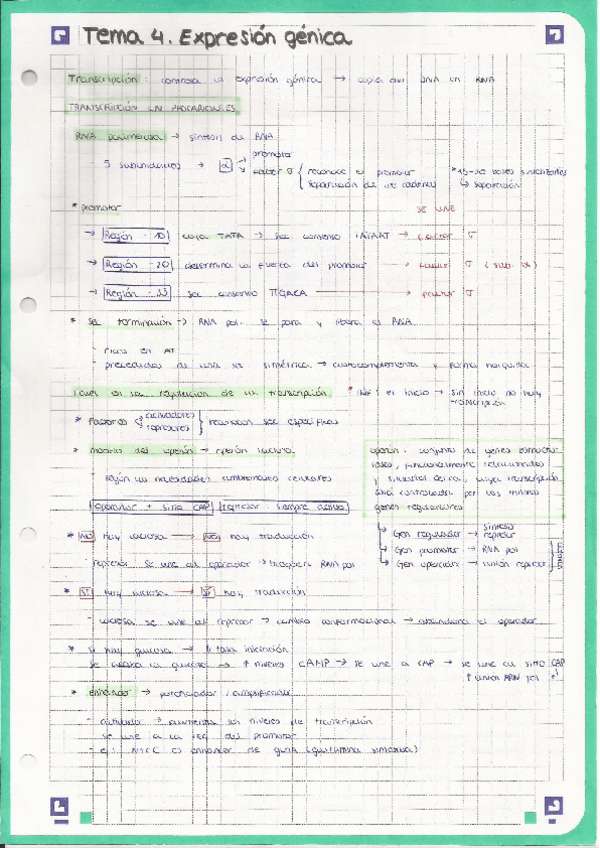 Tema 4. Expresión génica
Transcripción: controla la expresión génica → copia del DNA en RNA
TRANSCRIPCIÓN EN PROCARIONTES
RNA polimerasa → síntesis de RNA
- 5 subunidades → α → promotor
→ factor σ { reconoce el promotor
separación de las cadenas
* 15-20 bases
↳ separación
* promotor
SE UNE
→ Región -10 caja TATA → sec consenso TATAAT → factor σ
→ Región -20 determina la fuerza del promotor → factor σ (sub. α)
→ Región -35 sec consenso TTGACA → factor σ
* sec terminación → RNA pol. se para y libera el RNA
- ricas en AT
- precedidas de una sec simétrica → autocomplementa y forma horquilla
la regulación de la transcripción
el inicio → sin inicio no hay transcripción
* Factores { activadores
represores } reconocen sec específicas
* modelo del operón → operón lactosa
- según las necesidades celulares
operador + sitio CAP
represor siempre activo
operón: conjunto de genes estructurales, funcionalmente relacionados
y situados cerca, cuya transcripción
está controlada por los mismos
genes reguladores
↳ Gen regulador → síntesis represor
↳ Gen promotor → RNA pol
↳ Gen operador → unión represor
* NO hay lactosa → NO hay traducción
- represor se une al operador → bloquea RNA pol
* SI hay lactosa → SI hay traducción
- lactosa se une al represor → cambio conformacional → abandona el operador
* si hay glucosa → ↓ tasa
se acaba la glucosa → ↑ niveles cAMP → se une a CAP → se une al sitio CAP
↑ unión RNA pol
* enhancer → potenciador / amplificador
- activador → aumenta los niveles de transcripción
- se une a la reg del promotor
- ej: NtrC es enhancer de glnA (glutamina sintetasa)